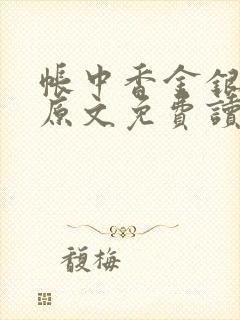 帳中香金銀
原文免費讀
馥梅